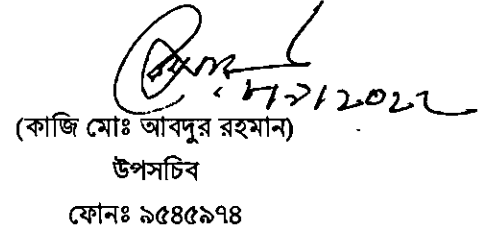 (কাজি মোঃ আবদুর রহমান)
উপসচিব
ফোনঃ ৯৫৪৫৯৭৪